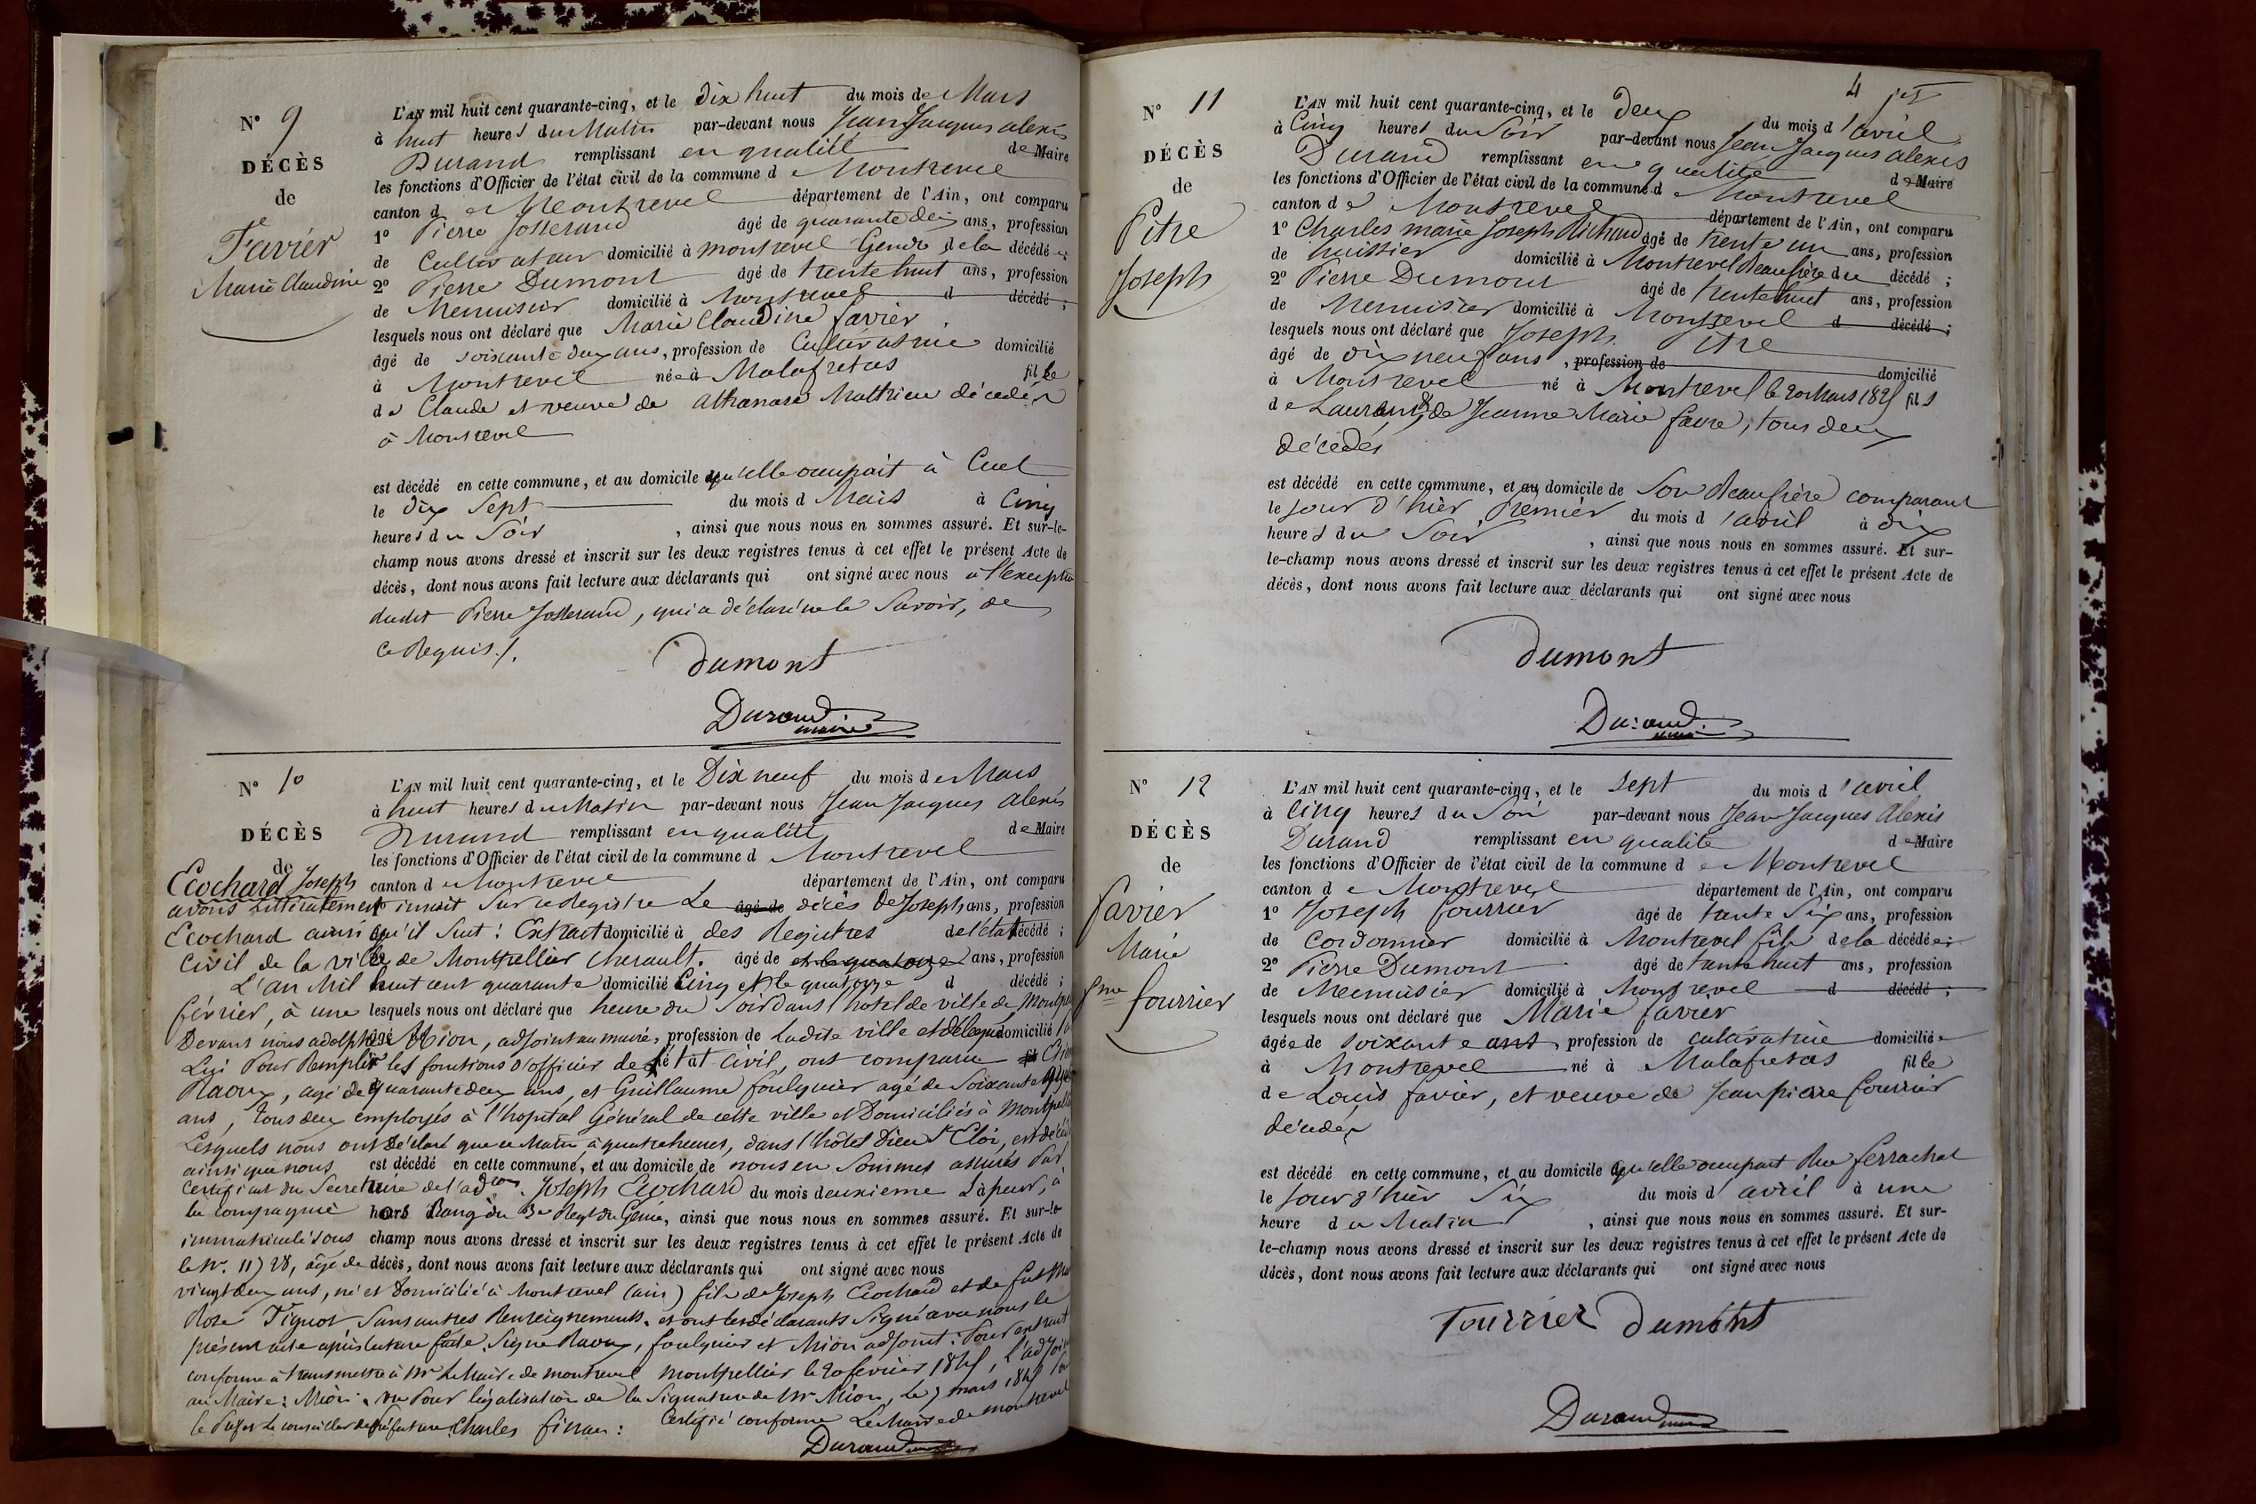 N° 9
DÉCÈS
de
Favier
Marie Claudine
L'AN mil huit cent quarante-cinq, et le dix huit du mois de Mars
à huit heures du Matin par-devant nous Jean Jacques alexis
Durand remplissant en qualité de Maire
les fonctions d'Officier de l'état civil de la commune de Montrevel
canton de Montrevel département de l'Ain, ont comparu
1° Pierre Josserand âgé de quarante deux ans, profession
de Cultivateur domicilié à montrevel Gendre de la décédée;
2° Pierre Dumont âgé de trente huit ans, profession
de Menuisier domicilié à Montrevel d décédé;
lesquels nous ont déclaré que Marie Claudine favier
âgé de soixante deux ans, profession de Cultivatrice domicilié
à Montrevel née à Malafretas fille
de Claude et veuve de athanase Mathieu décédés
à Montrevel
est décédé en cette commune, et au domicile qu'elle occupait à Cuet
le dix Sept du mois d Mars à Cinq
heures du Soir, ainsi que nous nous en sommes assuré. Et sur-le-
champ nous avons dressé et inscrit sur les deux registres tenus à cet effet le présent Acte de
décès, dont nous avons fait lecture aux déclarants qui ont signé avec nous à l'exception
dudit Pierre Josserand, qui a déclaré ne le Savoir, de
ce Requis /.
dumont
Durand
maire
N° 10
DÉCÈS
de
Ecochard Joseph
L'AN mil huit cent quarante-cinq, et le Dix neuf du mois de Mars
à huit heures du Matin par-devant nous Jean Jacques alexis
Durand remplissant en qualité de Maire
les fonctions d'Officier de l'état civil de la commune d Montrevel
canton de Montrevel département de l'Ain, ont comparu
avons Littéralement inscrit Sur ce Registre Le âgé de décès de Joseph ans, profession
Ecochard ainsi qu'il Suit: Extrait domicilié à des Registres de l'état décédé;
Civil de la ville de Montpellier Cherault. âgé de et le quatorze ans, profession
L'an Mil huit cent quarante domicilié Cinq et le quatorze d décédé;
février, à une lesquels nous ont déclaré que heure du Soir dans l'hotel de ville de
Devant nous adolphe âgé Mion, adjoint au maire, profession de Ladite ville et délégué domicilié
Lui Pour Remplir les fonctions d'officier de l'état Civil, ont comparu
Raoux, agé de quarante deux ans, et Guillaume foulquier agé de Soixante
ans, tous deux employés à l'hopital Général de cette ville et Domiciliés à Montpellier
Lesquels nous ont Déclaré que ce Matin à quatre heures, dans l'hôtel Dieu St Eloi, est décédé
ainsi que nous est décédé en cette commune, et au domicile de nous en Sommes assurés Par
Certificat du Secrétaire de l'adon. Joseph Ecochard du mois deuxieme Sapeur, à
la compagnie hors Rang du 3e Regt du Génie, ainsi que nous nous en sommes assuré. Et sur-le-
immatriculé Sous champ nous avons dressé et inscrit sur les deux registres tenus à cet effet le présent Acte de
le N°. 11728, âgé de décès, dont nous avons fait lecture aux déclarants qui ont signé avec nous
vingt deux ans, né et Domicilié à Montrevel (ain) fils de Joseph Ecochard et de
Rose Tignot Sans autres Renseignements. et ont les déclarants Signé avec nous le
présent acte après lecture faite. Signé Raoux, foulquier et Mion adjoint: Pour extrait
conforme à transmettre à Mr Le Maire de montrevel Montpellier le 20 fevrier 1845, L'adjoint
au Maire: Mion. Vu Pour légalisation de la Signature de Mr Mion, Le 7 mars 1845
le Préfet Le conseiller de Préfecture Charles : Certifié conforme Le Maire de montrevel
Durand
4
N° 11
DÉCÈS
de
Pitre
Joseph
L'AN mil huit cent quarante-cinq, et le Deux du mois d'avril
à Cinq heures du Soir par-devant nous Jean Jacques alexis
Durand remplissant en qualité de Maire
les fonctions d'Officier de l'état civil de la commune d Montrevel
canton de Montrevel département de l'Ain, ont comparu
1° Charles marie Joseph Richard âgé de trente un ans, profession
de huissier domicilié à Montrevel Beaufrère du décédé;
2° Pierre Dumont âgé de trente huit ans, profession
de Menuisier domicilié à Montrevel d décédé;
lesquels nous ont déclaré que Joseph Pitre
âgé de dix neuf ans, profession de domicilié
à Montrevel né à Montrevel le 20 Mars 1825 fils
de Laurent, & de Jeanne Marie favre, tous deux
décédés
est décédé en cette commune, et au domicile de Son Beaufrère comparant
le Jour d'hier Premier du mois d'avril à dix
heures du Soir, ainsi que nous nous en sommes assuré. Et sur-
le-champ nous avons dressé et inscrit sur les deux registres tenus à cet effet le présent Acte de
décès, dont nous avons fait lecture aux déclarants qui ont signé avec nous
dumont
Durand
N° 12
DÉCÈS
de
favier
Marie
fme fourrier
L'AN mil huit cent quarante-cinq, et le Sept du mois d'avril
à Cinq heures du Soir par-devant nous Jean Jacques Alexis
Durand remplissant en qualité de Maire
les fonctions d'Officier de l'état civil de la commune de Montrevel
canton de Montrevel département de l'Ain, ont comparu
1° Joseph fourrier âgé de trente Six ans, profession
de Cordonnier domicilié à Montrevel fils de la décédée;
2° Pierre Dumont âgé de trente huit ans, profession
de Menuisier domicilié à Montrevel d décédé;
lesquels nous ont déclaré que Marie favier
âgée de Soixante ans, profession de cultivatrice domiciliée
à Montrevel né à Malafretas fille
de Louis favier, et veuve de Jean pierre fourrier
décédés
est décédé en cette commune, et au domicile qu'elle occupait Rue ferrachat
le Jour d'hier Six du mois d'avril à une
heure du Matin, ainsi que nous nous en sommes assuré. Et sur-
le-champ nous avons dressé et inscrit sur les deux registres tenus à cet effet le présent Acte de
décès, dont nous avons fait lecture aux déclarants qui ont signé avec nous
Fourrier dumont
Durand